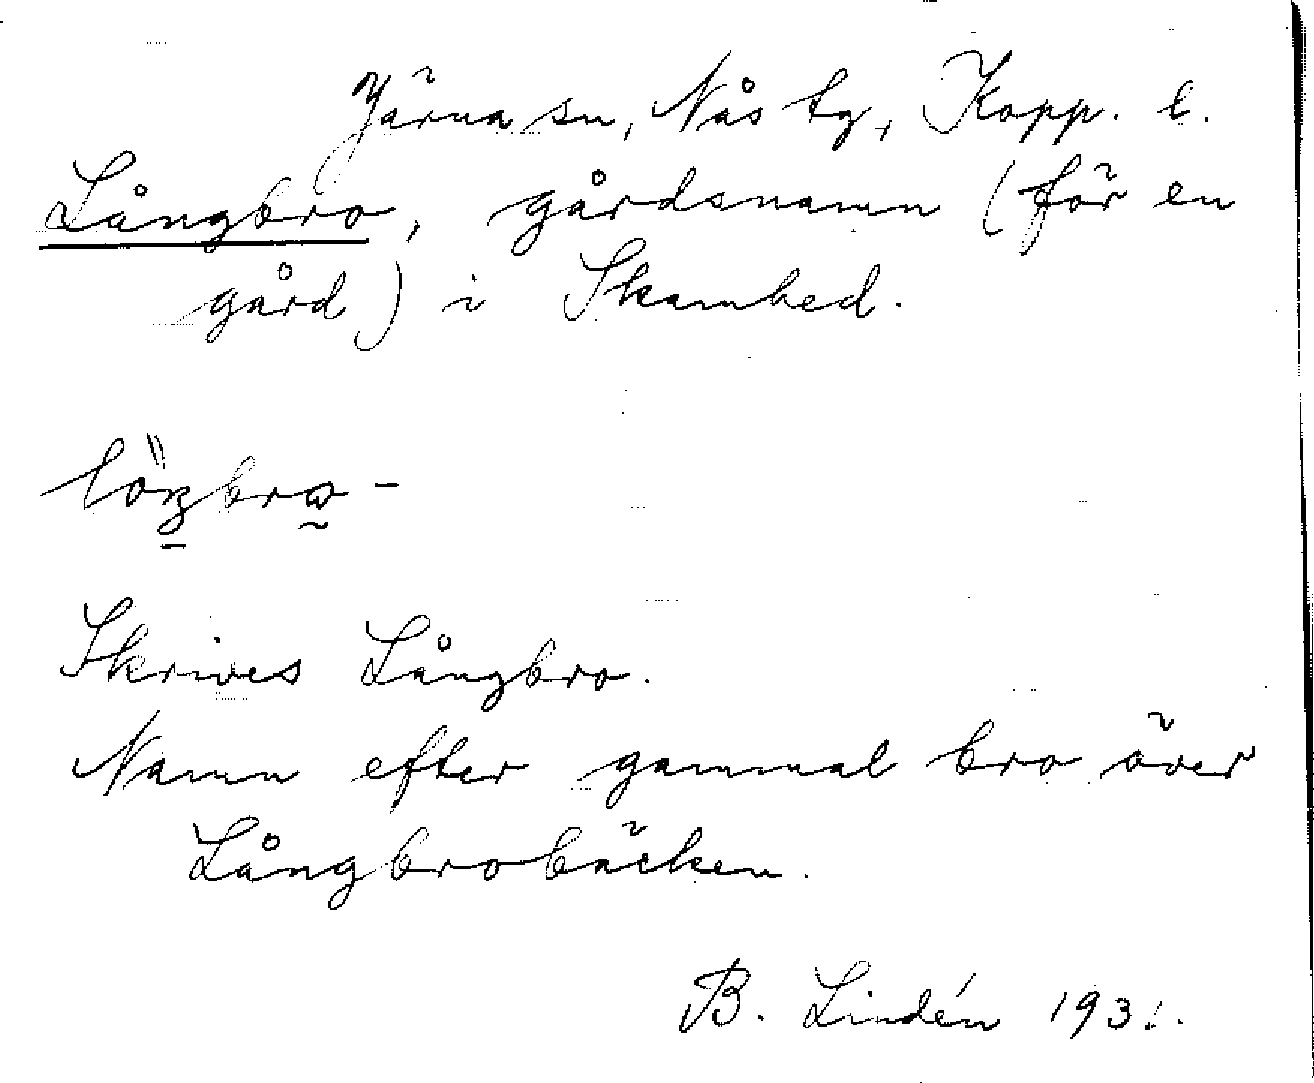 Järna sn, Nås tg, Kopp. l.
Långbro, gårdsnamn (för en
gård) i Skamhed.
Skrives Långbro.
Namn efter gammal bro över
Långbrobäcken.
B. Lindén 1931.